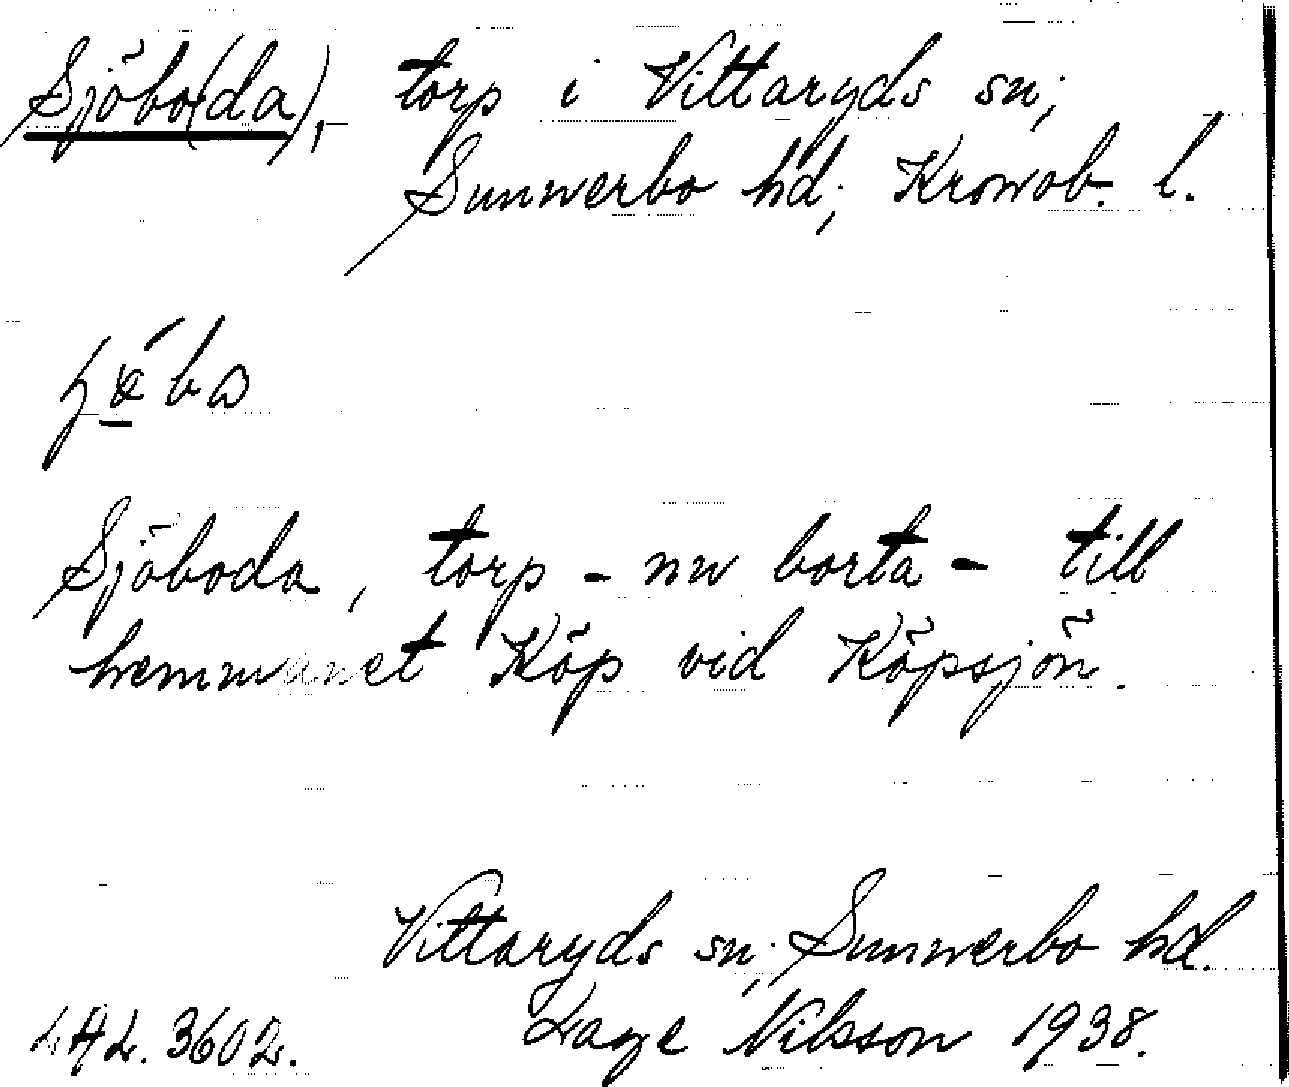 Sjöbo(da), torp i Vittaryds sn;
Sunnerbo hd; Kronob. l.
Sjöboda, torp - nu borta - till
hemmanet Köp vid Köpsjön.
Vittaryds sn; Sunnerbo hd.
LAL. 3602. Lage Nilsson 1938.